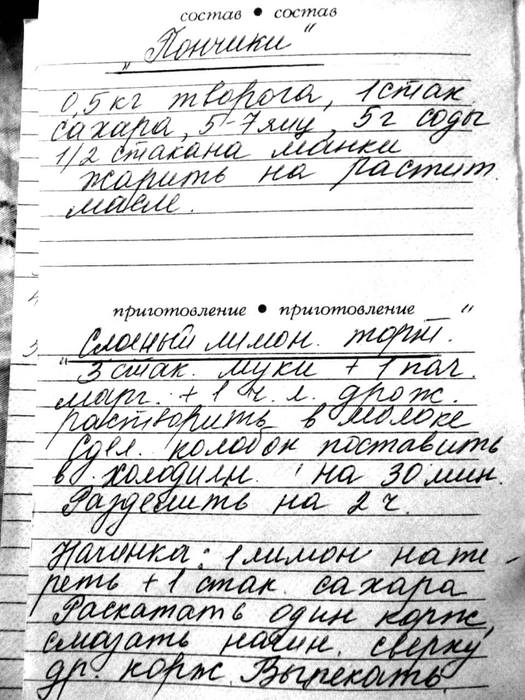 состав • состав
„Пончики“
0,5 кг творога, 1 стак
сахара, 5-7 яиц, 5 г соды
1/2 стакана манки
жарить на растит.
масле.
приготовление • приготовление
"Слоеный лимон. торт."
3 стак. муки + 1 пач.
марг. + 1 ч. л. дрож.
растворить в молоке
сдел. колобок поставить
в холодильн. на 30 мин.
Разделить на 2 ч.
Начинка: 1 лимон нате-
реть + 1 стак. сахара
Раскатать один корж,
смазать начин. сверху
др. корж. Выпекать